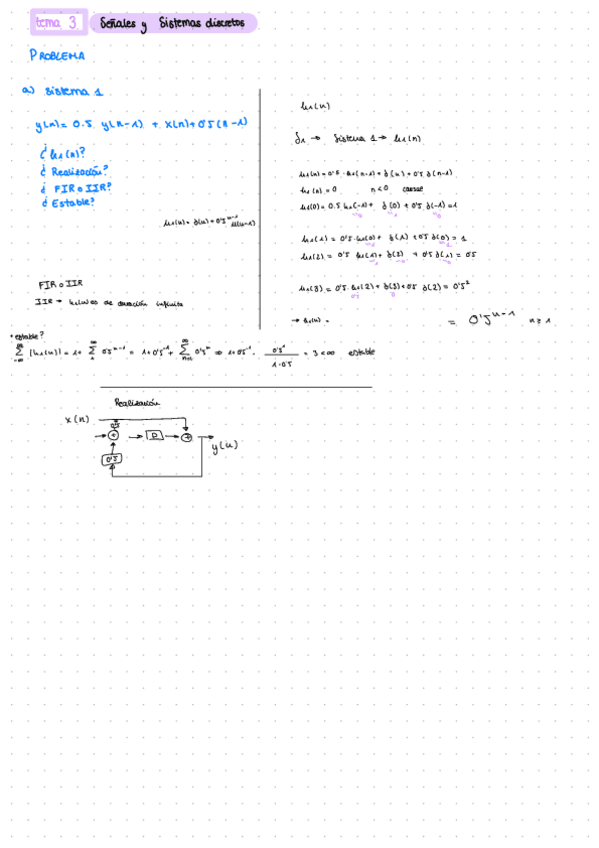 tema 3 Señales y Sistemas discretos
PROBLEMA
a) Sistema 1
y(n) = 0.5 y(n-1) + x(n) + 0'5(n-1)
¿ h1(n)?
¿ Realización?
¿ FIR o IIR?
¿ Estable?
h1(n) = δ(n) + 0'5^(n-1) u(n-1)
FIR o IIR
IIR → h1(n) es de duración infinita
h1(n)
δ1 → Sistema 1 → h1(n)
h1(n) = 0'5 · h1(n-1) + δ(n) + 0'5 δ(n-1)
h1(n) = 0 n<0 causal
h1(0) = 0.5 h1(-1) + δ(0) + 0'5 δ(-1) = 1
→0 →1 →0
h1(1) = 0'5 · h1(0) + δ(1) + 0'5 δ(0) = 1
h1(2) = 0'5 h1(1) + δ(3) + 0'5 δ(1) = 0'5
h1(3) = 0'5 · h1(2) + δ(3) + 0'5 δ(2) = 0'5^2
0'5 0
→ h1(n) = = 0'5^(n-1) n≥1
• estable?
∞ Σ -∞ |h1(n)| = 1 + ∞ Σ 1 0'5^(n-1) = 1 + 0'5^-1 + ∞ Σ n=1 0'5^n ⇒ 1 + 0'5^-1 · 0'5^1 / 1-0'5 = 3 < ∞ estable
Realización
x(n)
0'5
+ D +
y(n)
0'5